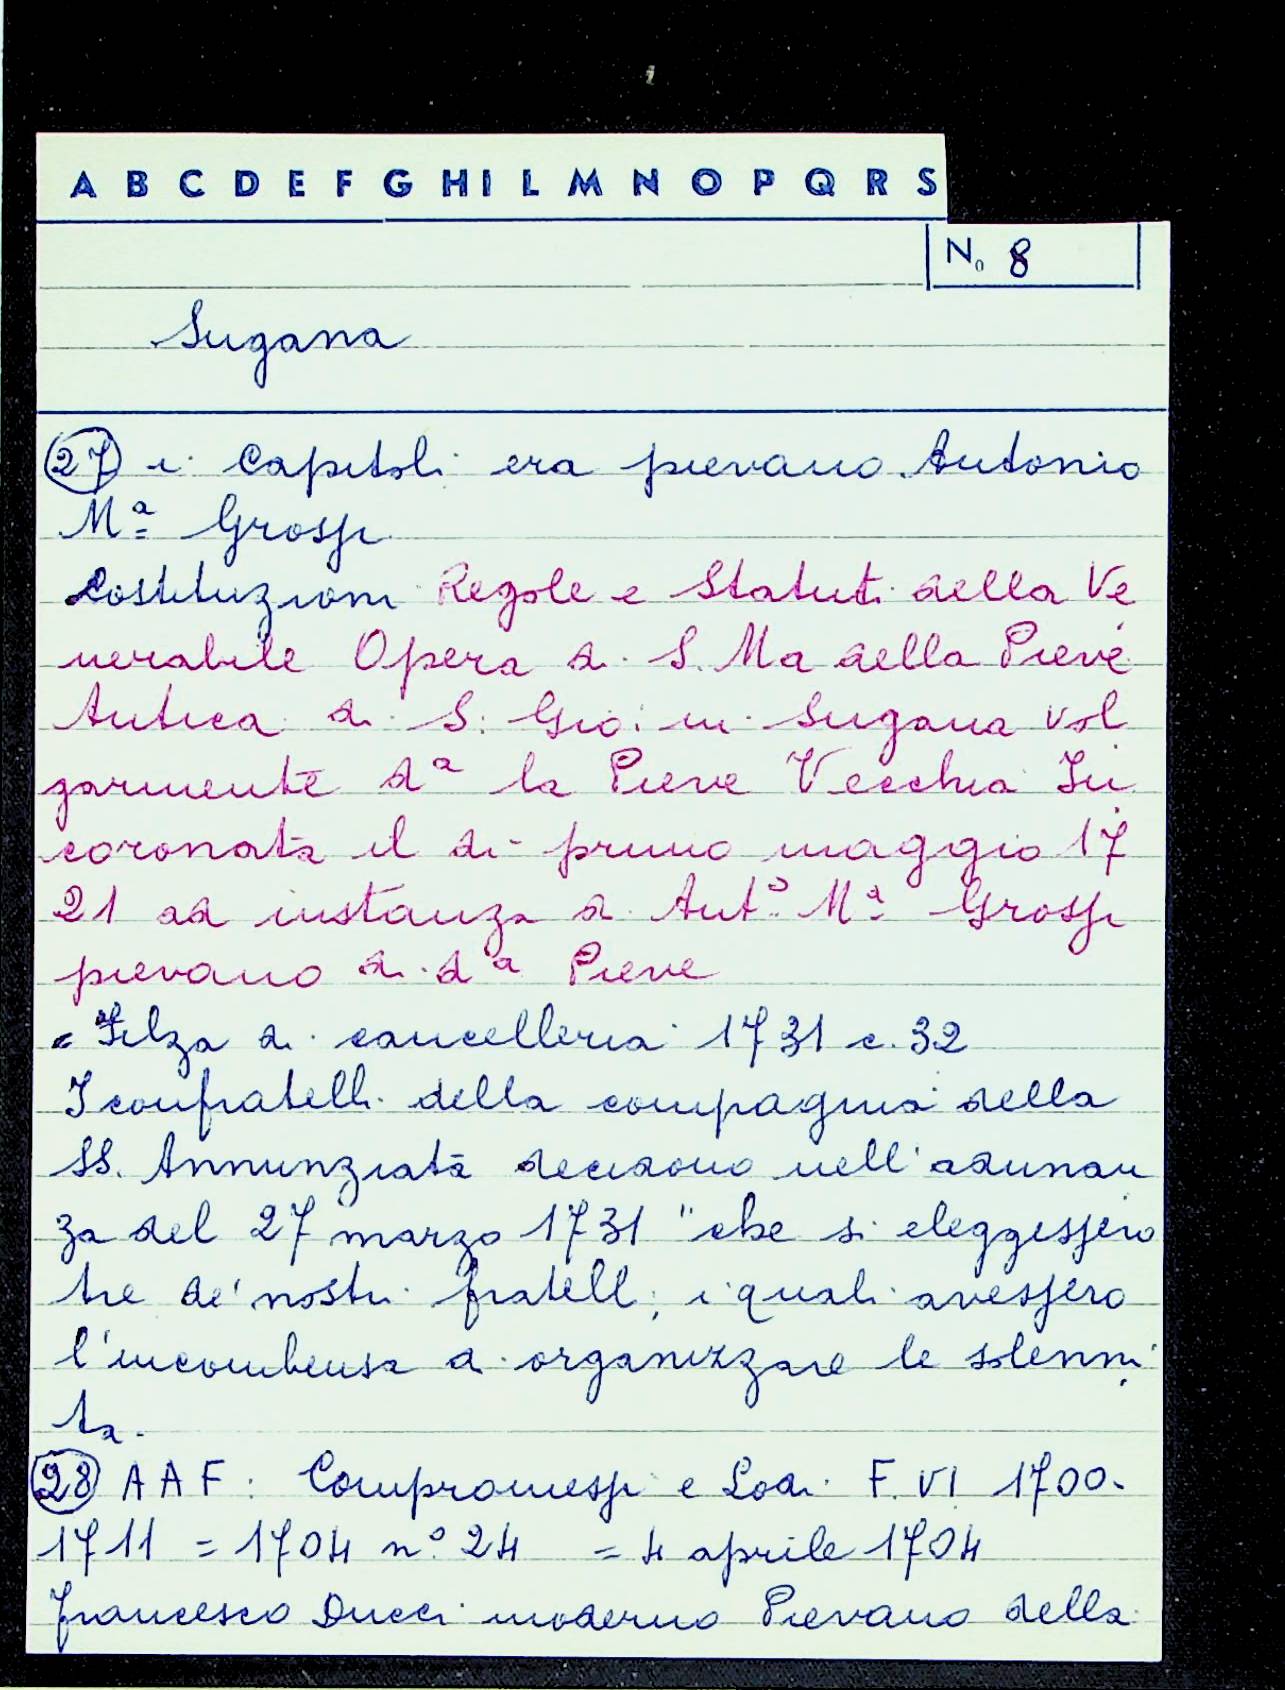 A B C D E F G H I L M N O P Q R S
N. 8
Sugana
27 i Capitoli era pievano Antonio
Mª Grossi
Costituzioni Regole e Statuti della Ve
nerabile Opera di S. Ma della Pieve
Antica di S. Gio: in Sugana vol
garmente dª la Pieve Vecchia In
coronata il dì primo maggio 17
21 ad instanza di Antº Mª Grossi
pievano di dª Pieve
= Filza di cancelleria 1731 c. 32
I confratelli della compagnia della
SS. Annunziata decidono nell'adunan
za del 27 marzo 1731 "che si eleggessero
tre de' nostri fratelli, i quali avessero
l'incombensa di organizzare le solenni
tà.
28 AAF: Compromessi e Lodi F. VI 1700-
1711 = 1704 nº 24 = 4 aprile 1704
Francesco Ducci moderno Pievano della